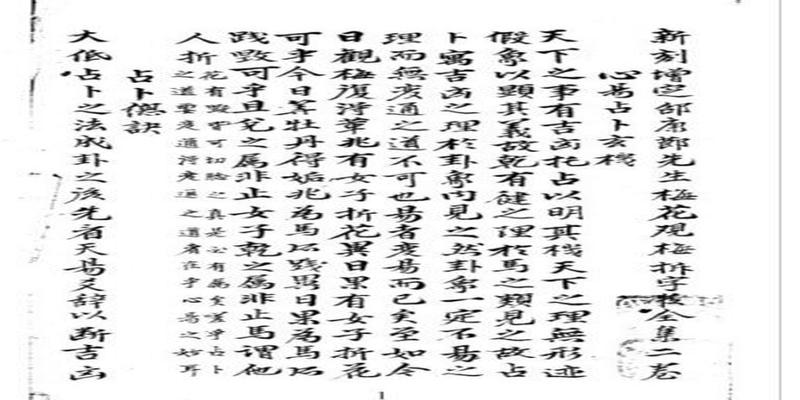 新刻增定邵康節先生梅花觀梅拆字數全集二卷
心易占卜玄機
天下之事有吉凶托占以明其機天下之理無形迹
假象以顯其義故乾有健之理於馬之類見之故占
卜寓吉凶之理於卦象內見之然卦象一定不易之
理而無變通之道不可也易者變易而已矣至如今
日觀梅復得革兆有女子折花異日果有女子折花
可乎今日筭牡丹得姤兆為馬所踐異日果為馬所
踐毀可乎且兌之屬非止女子乾之屬非止馬謂他
人折花有毀皆可切驗之真是必有屬矣嗟乎占卜
之道要變通得變通之道者在乎心易之妙耳
占卜總訣
大低占卜之法成卦之後先看周易爻辭以斷吉凶
1